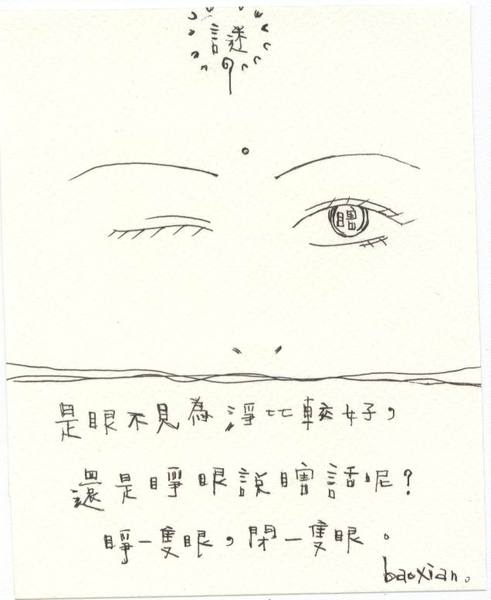 謎
瞎
是眼不見為淨比較好，
還是睜眼說瞎話呢？
睜一隻眼，閉一隻眼。
baoxian.